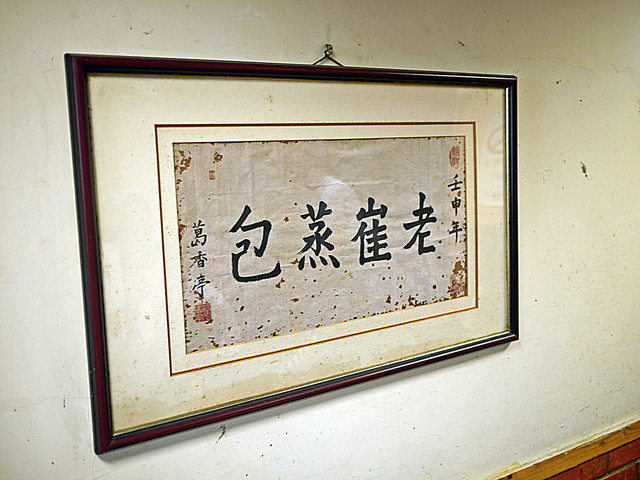 壬申年
老崔蒸包
葛香亭